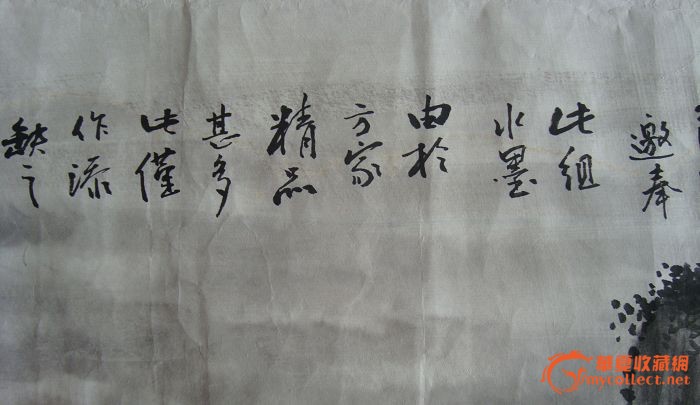 邀奉
此組
水墨
由於
方家
精品
甚多
此僅
作添
缺之
華夏收藏網
mycollect.net